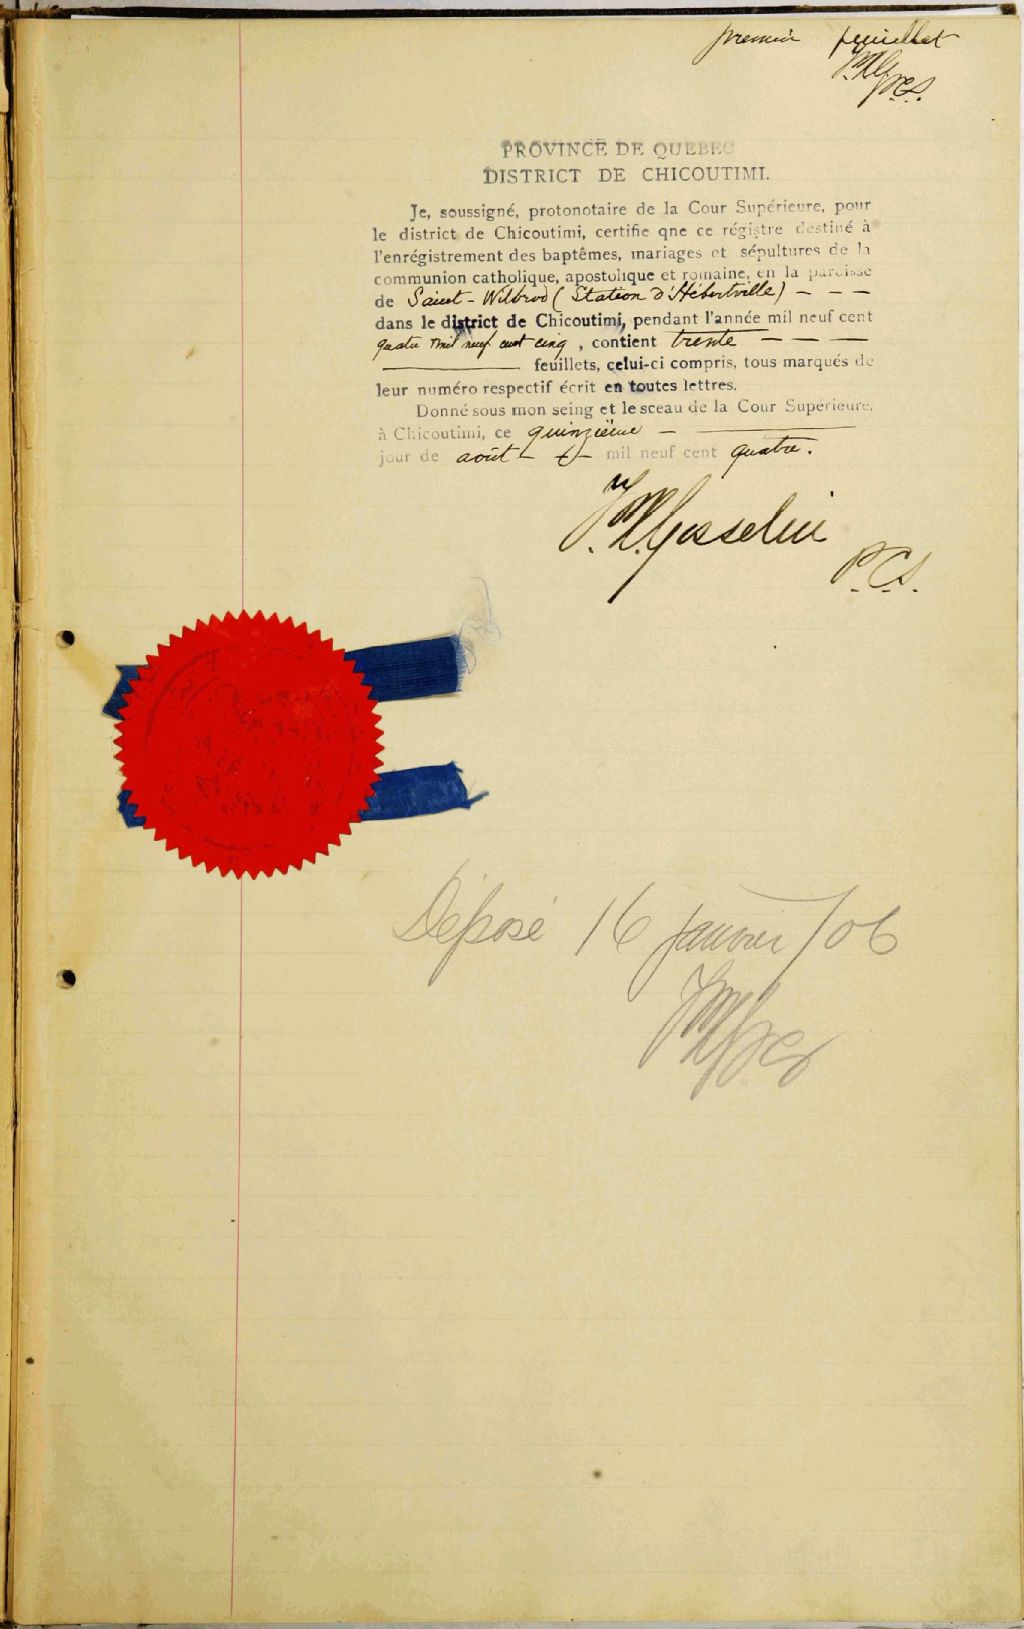 premier feuillet
PROVINCE DE QUEBEC
DISTRICT DE CHICOUTIMI.
Je, soussigné, protonotaire de la Cour Supérieure, pour
le district de Chicoutimi, certifie qne ce régistre destiné à
l'enrégistrement des baptêmes, mariages et sépultures de la
communion catholique, apostolique et romaine, en la paroisse
de Saint-Wilbrod (Station d'Hébertville) - - -
dans le district de Chicoutimi, pendant l'année mil neuf cent
quatre mil neuf cent cinq, contient trente - - -
feuillets, celui-ci compris, tous marqués de
leur numéro respectif écrit en toutes lettres.
Donné sous mon seing et le sceau de la Cour Supérieure,
à Chicoutimi, ce quinzième -
jour de août - mil neuf cent quatre.
Gosselin
P.C.S.
Déposé 16 janvier /06